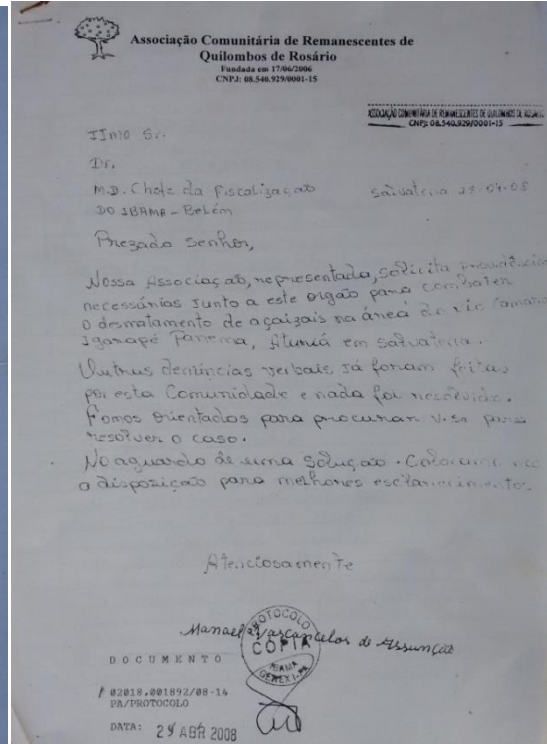 Associação Comunitária de Remanescentes de
Quilombos de Rosário
Fundada em 17/06/2006
CNPJ: 08.540.929/0001-15
ASSOCIAÇÃO COMUNITÁRIA DE REMANESCENTES DE QUILOMBOS DE ROSÁRIO
CNPJ: 08.540.929/0001-15
Ilmo Sr.
Dr.
M.D. Chefe da Fiscalização
DO IBAMA - Belém
Salvaterra 29-04-08
Prezado Senhor,
Nossa Associação, representada, solicita providências
necessárias Junto a este orgão para combater
o desmatamento de açaizais na área do rio Camará
Igarapé Panema, em Salvaterra.
Outras denúncias verbais já foram feitas
por esta Comunidade e nada foi resolvido.
Fomos Orientados para procurar V.Sa para
resolver o caso.
No aguardo de uma Solução. Colocamo nos
a disposição para melhores esclarecimentos
Atenciosamente
Manael Vascancelos de Assunção
PROTOCOLO
COPIA
IBAMA
GEREX I-PA
DOCUMENTO
02018.001892/08-14
PA/PROTOCOLO
DATA: 29 ABR 2008